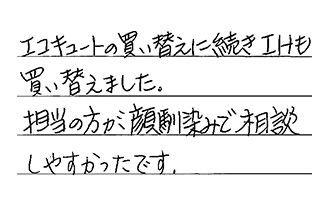 エコキュートの買い替えに続きIHも
買い替えました。
担当の方が顔馴染みで相談
しやすかったです.